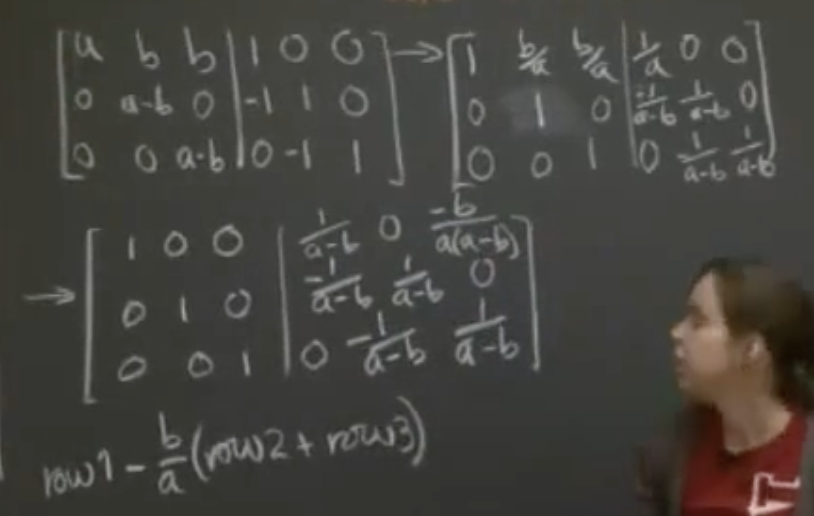 [a b b | 1 0 0] → [1 b/a b/a | 1/a 0 0]
[0 a-b 0 | -1 1 0] [0 1 0 | -1/a-b 1/a-b 0]
[0 0 a-b | 0 -1 1] [0 0 1 | 0 -1/a-b 1/a-b]
→ [1 0 0 | 1/a-b 0 -b/a(a-b)]
[0 1 0 | -1/a-b 1/a-b 0]
[0 0 1 | 0 -1/a-b 1/a-b]
row1 - b/a (row2 + row3)